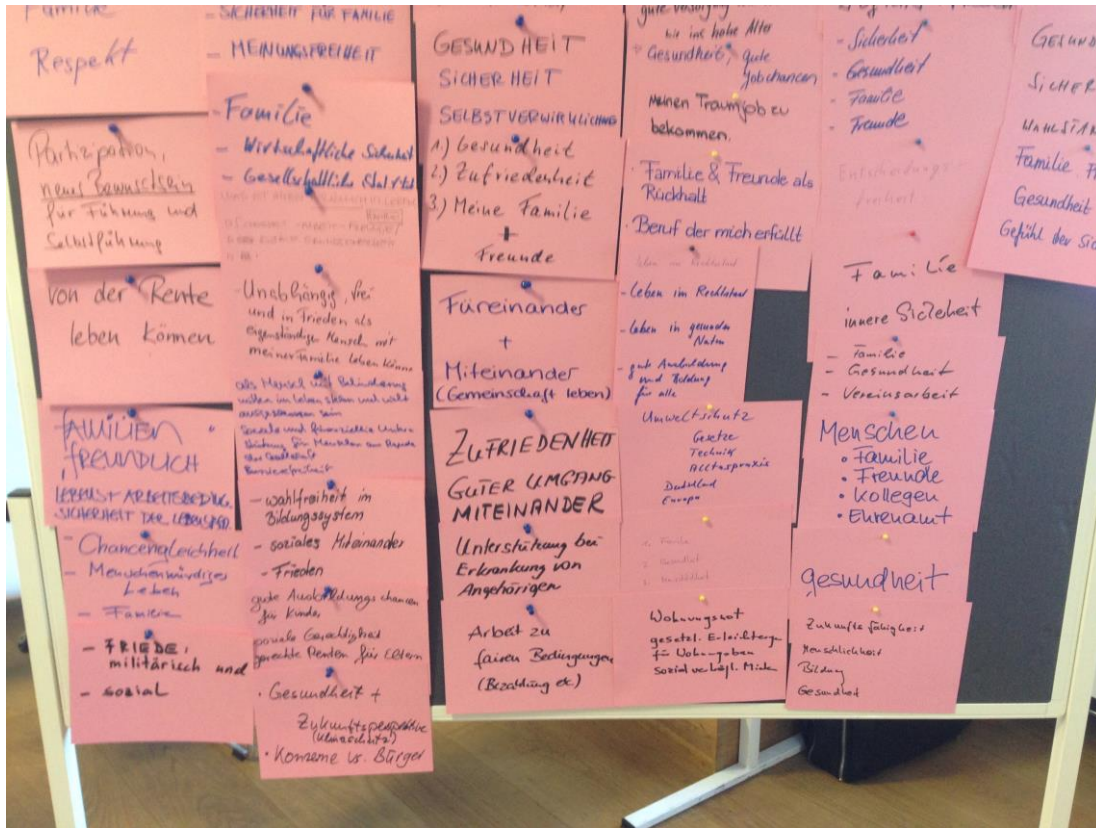 Familie
Respekt
Partizipation,
neues Bewusstsein
für Führung und
Selbstführung
von der Rente
leben können
FAMILIEN
FREUNDLICH
LEBENS + ARBEITSBEDING.
SICHERHEIT DER
- Chancengleichheit
- Menschenwürdiges
Leben
- Familie
- FRIEDE:
militärisch und
- sozial
- SICHERHEIT FÜR FAMILIE
- MEINUNGSFREIHEIT
- Familie
- Wirtschaftliche Sicherheit
- Gesellschaftliche
- Unabhängig, frei
und in Frieden als
eigenständiger Mensch mit
meiner Familie leben können
als Mensch mit Behinderung
mitten im Leben stehen und nicht
ausgeschlossen sein
Soziale und finanzielle
für Menschen am Rande
der Gesellschaft
Barrierefreiheit
- wahlfreiheit im
Bildungssystem
- soziales Miteinander
- Frieden
gute Ausbildungschancen
für Kinder
soziale Gerechtigkeit
gerechte Renten für Eltern
• Gesundheit +
Zukunftsperspektive
(Klimaschutz)
• Konzerne vs. Bürger
GESUNDHEIT
SICHERHEIT
SELBSTVERWIRKLICHUNG
1.) Gesundheit
2.) Zufriedenheit
3) Meine Familie
+
Freunde
Füreinander
+
Miteinander
(Gemeinschaft leben)
ZUFRIEDENHEIT
GUTER UMGANG
MITEINANDER
Unterstützung bei
Erkrankung von
Angehörigen
Arbeit zu
fairen Bedingungen
(Bezahlung etc.)
gute Versorgung
bis ins hohe Alter
Gesundheit, gute
Jobchancen
meinen Traumjob zu
bekommen.
· Familie & Freunde als
Rückhalt
· Beruf der mich erfüllt
- Leben im Rechtsstaat
- leben in gesunder
Natur
- gute Ausbildung
und Bildung
für alle
Umweltschutz
Gesetze
Technik
Alltagspraxis
Deutschland
Europa
1. Familie
2. Gesundheit
3.
Wohnungsnot
gesetzl. Erleichterg.
für Wohnungsbau
sozial verträgl. Mieten
- Sicherheit
- Gesundheit
- Familie
- Freunde
Entscheidungs-
freiheit
Familie
innere Sicherheit
- Familie
- Gesundheit
- Vereinsarbeit
Menschen
• Familie
• Freunde
• Kollegen
• Ehrenamt
gesundheit
Zukunftsfähigkeit
Menschlichkeit
Bildung
Gesundheit
GESUND
SICHER
WOHLSTAN
Familie, F
Gesundheit
Gefühl der Sic